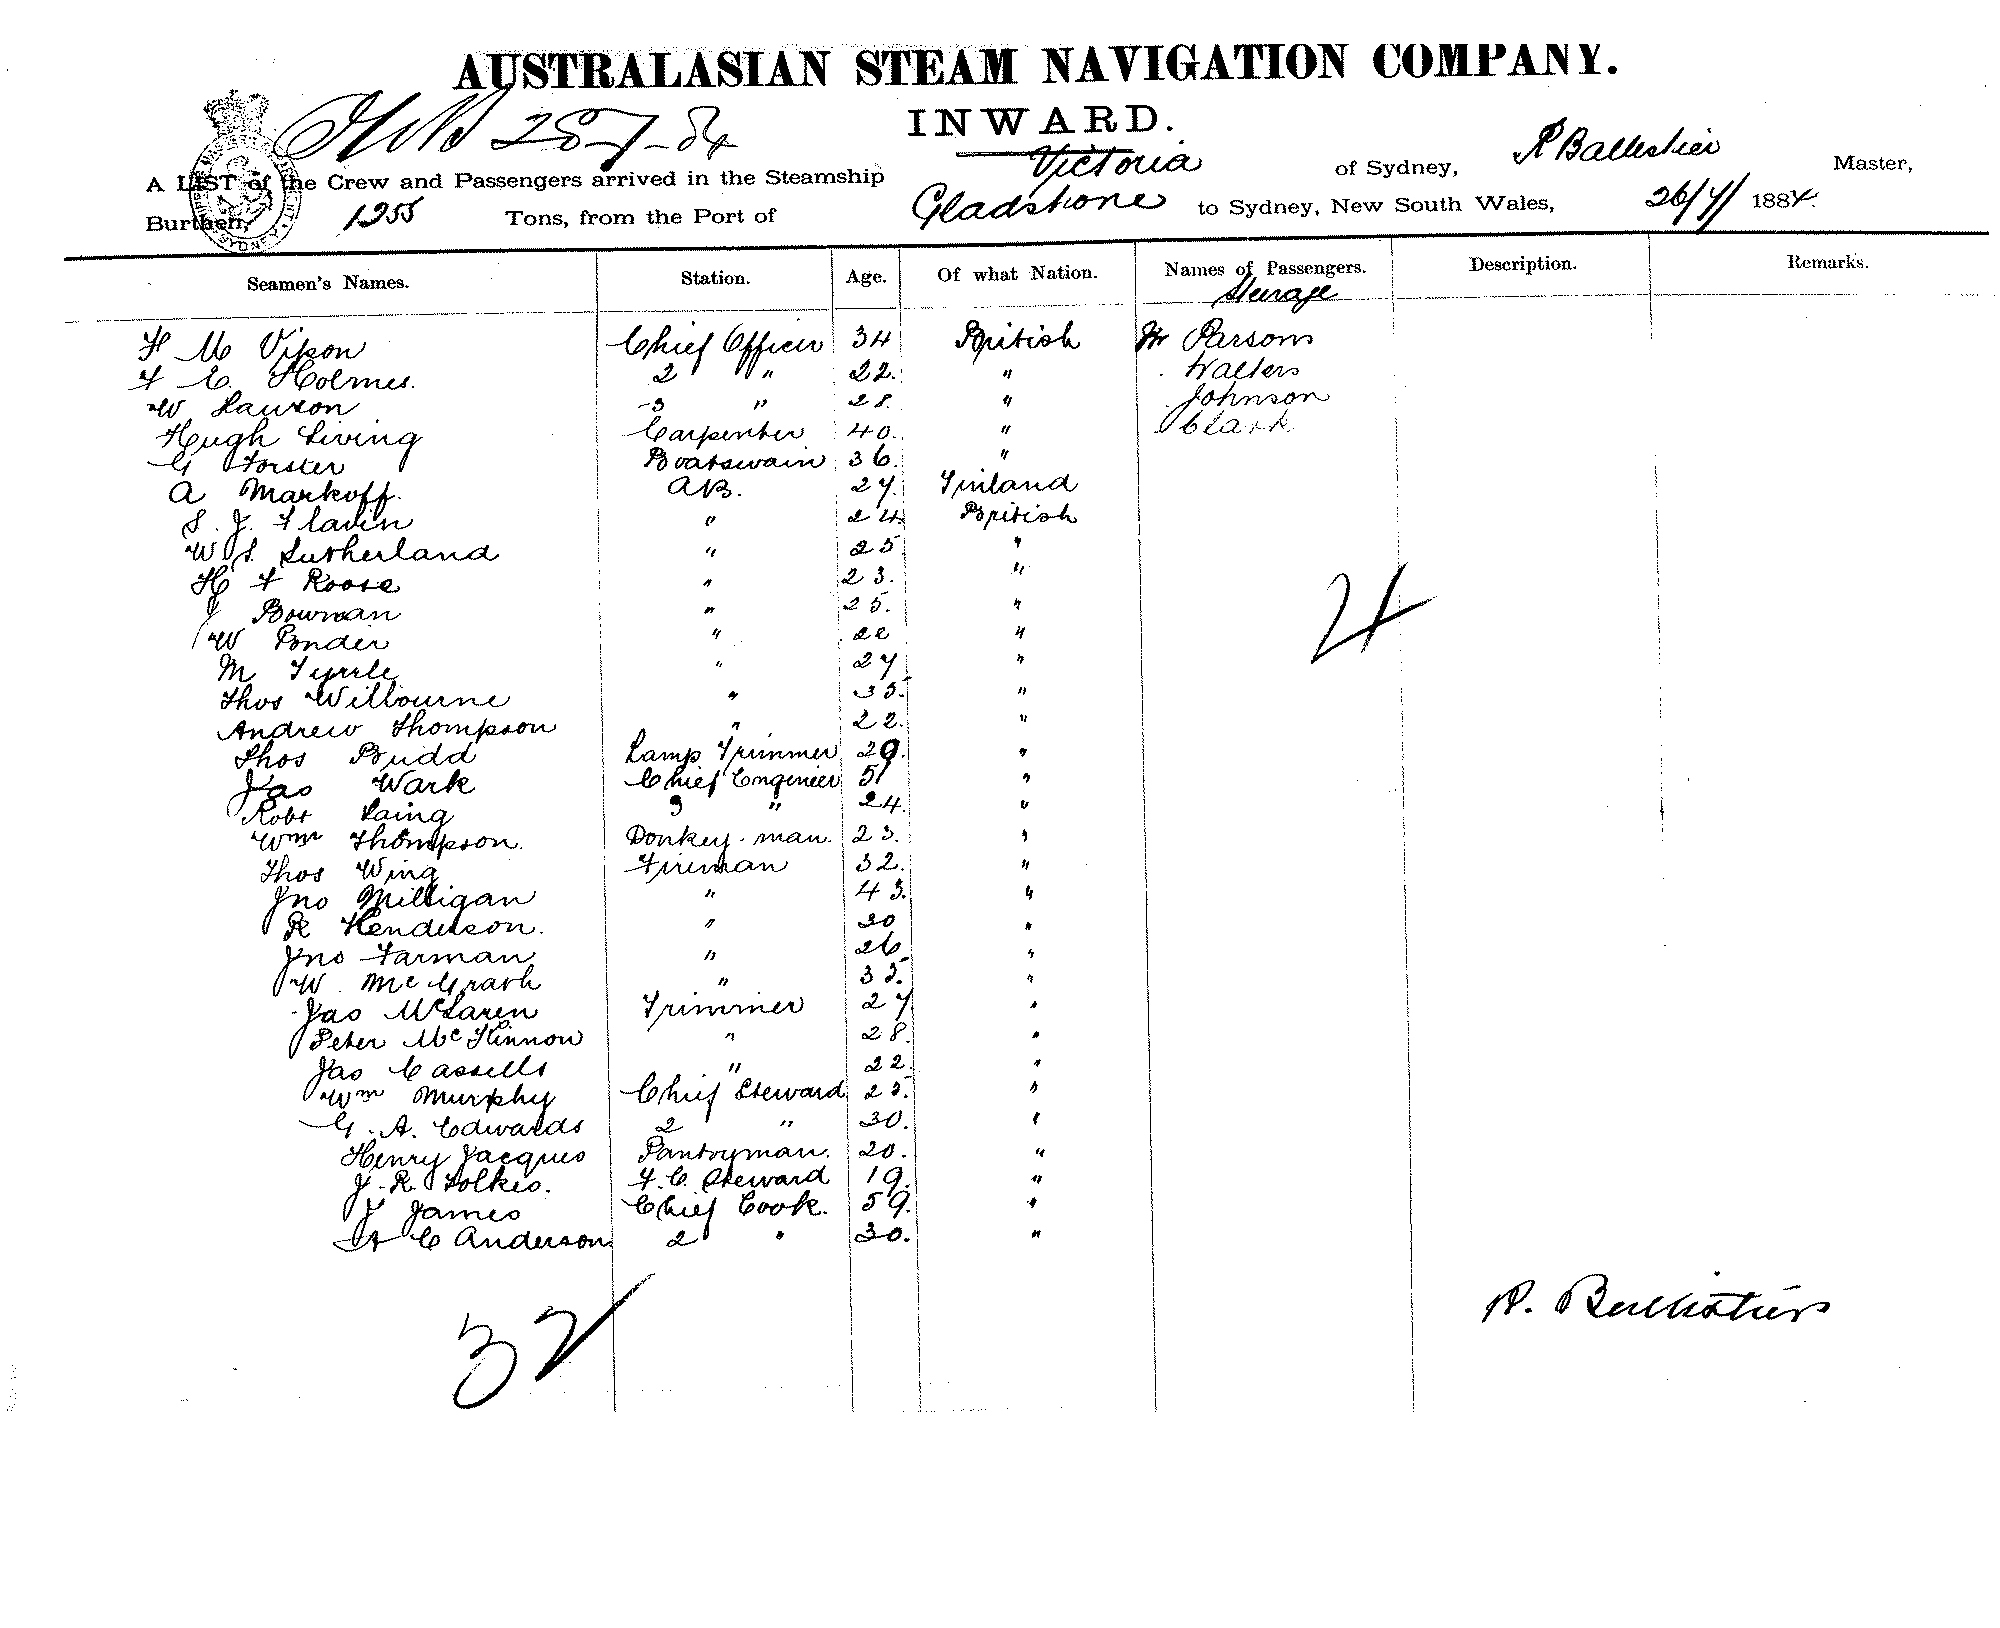 AUSTRALASIAN STEAM NAVIGATION COMPANY.
28-7-84
INWARD.
A LIST of the Crew and Passengers arrived in the Steamship Victoria of Sydney, R Ballestier Master,
Burthen, 1255 Tons, from the Port of Gladstone to Sydney, New South Wales, 26/7/1884.
Seamen's Names. Station. Age. Of what Nation. Names of Passengers. Description. Remarks.
Steerage
F M Vipon Chief Officer 34 British Mr Parsons
F C. Holmes. 2 " 22. " Walters
W Lawson 3 " 28. " Johnson
Hugh Living Carpenter 40. " Clark
G Forster Boatswain 36. "
A Markoff. AB. 27. Finland
S. J. Flavin " 24. British
W S. Sutherland " 25 "
H F Roose " 23. "
J Bowman " 25. "
W Ponder " 22 "
M Tyrrle " 27 "
Thos Wilbourne " 35. "
Andrew Thompson " 22. "
Thos Budd Lamp Trimmer 29. "
Jas Wark Chief Engineer 51 "
Robt Laing 3 " 24. "
Wm Thompson. Donkey-man. 23. "
Thos Wing Fireman 32. "
Jno Milligan " 43. "
R Henderson. " 30 "
Jno Farman " 26 "
W. McGrath " 35. "
Jas McLaren Trimmer 27 "
Peter McKinnon " 28. "
Jas Cassells " 22. "
Wm Murphy Chief Steward 25. "
G. A. Edwards 2 " 30. "
Henry Jacques Pantryman. 20. "
J. R. Folkes. F. C. Steward 19. "
J James Chief Cook. 59. "
C Anderson 2 " 30. "
4
32
R. Ballestier